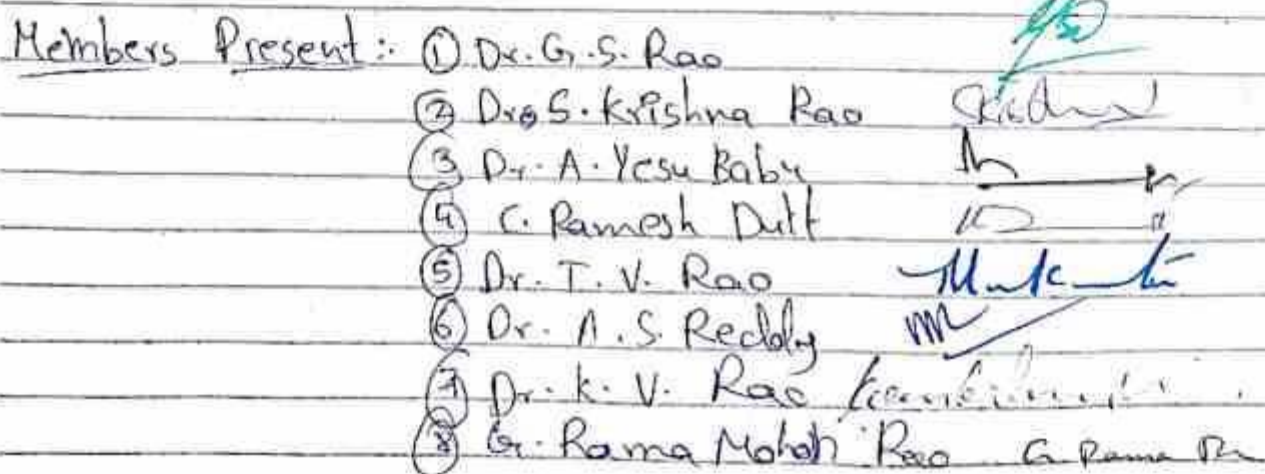 Members Present:- ① Dr. G. S. Rao
② Dr. S. Krishna Rao
③ Dr. A. Yesu Babu
④ C. Ramesh Dutt
⑤ Dr. T. V. Rao
⑥ Dr. A. S. Reddy
⑦ Dr. K. V. Rao
⑧ G. Rama Mohan Rao G Rama